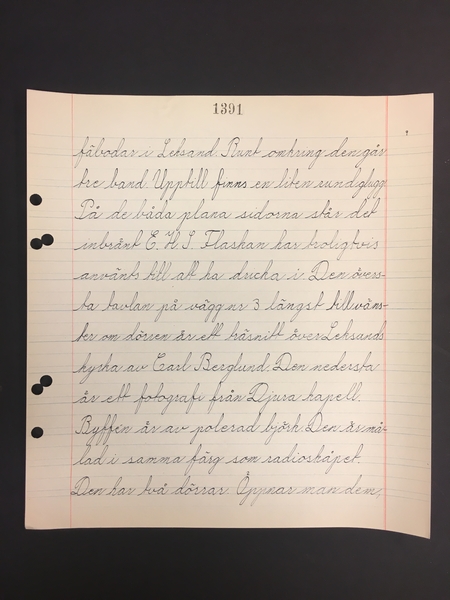 1391
fäbodar i Leksand Runt omkring den går
tre band. Upptill finns en liten rund glugg.
På de båda plana sidorna står det
inbränt E. H. S. Flaskan har troligtvis
använts till att ha dricka i. Den övers-
ta tavlan på vägg nr 3 längst till väns-
ter om dörren är ett träsnitt över Leksands
kyrka av Carl Berglund. Den nedersta
är ett fotografi från Djura kapell.
Byffén är av polerad björk. Den är må-
lad i samma färg som radioskåpet.
Den har två dörrar. Öppnar man dem,